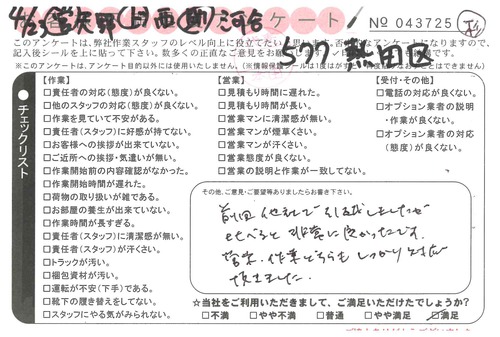 4/23 営矢野(上)西(剛)河合
ケート
No 043725
577 熱田区
このアンケートは、弊社作業スタッフのレベル向上に役立てたい
記入後シールを上に貼って下さい。数多くの正直なご意見をお願いします。
※このアンケートは、アンケート目的以外には使用いたしません。
チェックリスト
【作業】
□責任者の対応(態度)が良くない。
□他のスタッフの対応(態度)が良くない。
□作業を見ていて不安がある。
□責任者(スタッフ)に好感が持てない。
□お客様への挨拶が出来ていない。
□ご近所への挨拶・気遣いが無い。
□作業開始前の内容確認がなかった。
□作業開始時間が遅れた。
□荷物の取り扱いが雑である。
□お部屋の養生が出来ていない。
□作業時間が長すぎる。
□責任者(スタッフ)に清潔感が無い。
□責任者(スタッフ)が汗くさい。
□トラックが汚い。
□梱包資材が汚い。
□運転が不安(下手)である。
□靴下の履き替えをしてない。
□スタッフにやる気がみられない。
【営業】
□見積もり時間に遅れた。
□見積もり時間が長い。
□営業マンに清潔感が無い。
□営業マンが煙草くさい。
□営業マンが汗くさい。
□営業態度が良くない。
□営業の説明と作業が一致してない。
【受付・その他】
□電話の対応が良くない。
□オプション業者の説明
・作業が良くない。
□オプション業者の対応
(態度)が良くない。
その他、ご意見・ご要望等ありましたらお書き下さい。
前回他社で引越しましたが
比べると非常に良かったです。
営業、作業どちらもしっかり対応
頂きました。
☆当社をご利用いただきまして、ご満足いただけたでしょうか?
□不満 □やや不満 □普通 □やや満足 □満足